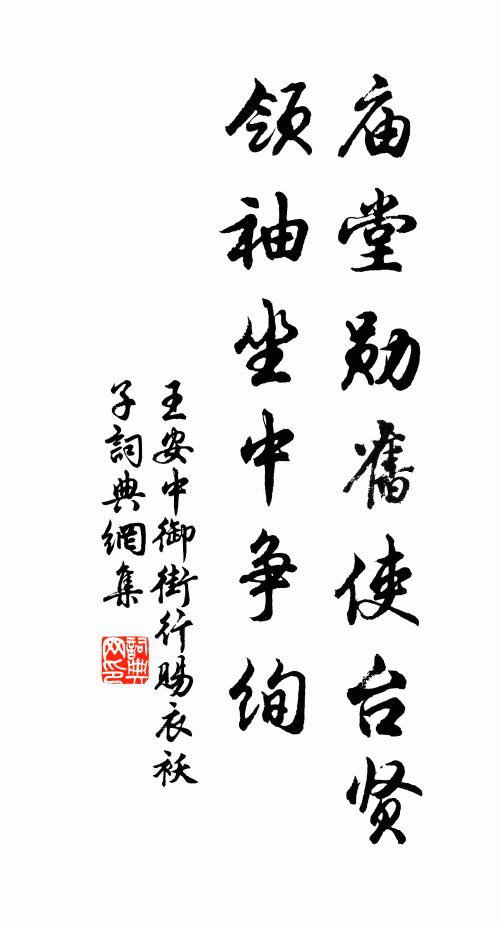 庙堂勋旧使台贤
领袖坐中争绚
王安中御街行赐衣袄
子詞典網集
詞典网印